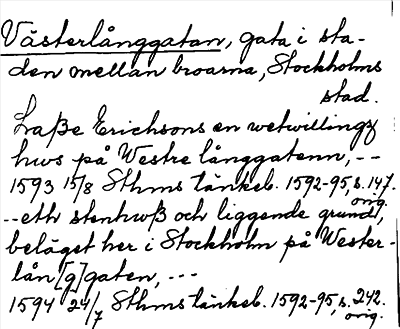 Västerlånggatan, gata i sta-
den mellan broarna, Stockholms
stad.
Laße Erichsons en wetwillings
hws på Westre långgatenn, --
1593 15/8 Sthms tänkeb. 1592-95, s. 147.
orig.
-- eth stenhwß och liggende grund,
beläget her i Stockholm på Wester-
lån[g]gaten, ---
1594 24/7 Sthms tänkeb. 1592-95, s. 242.
orig.